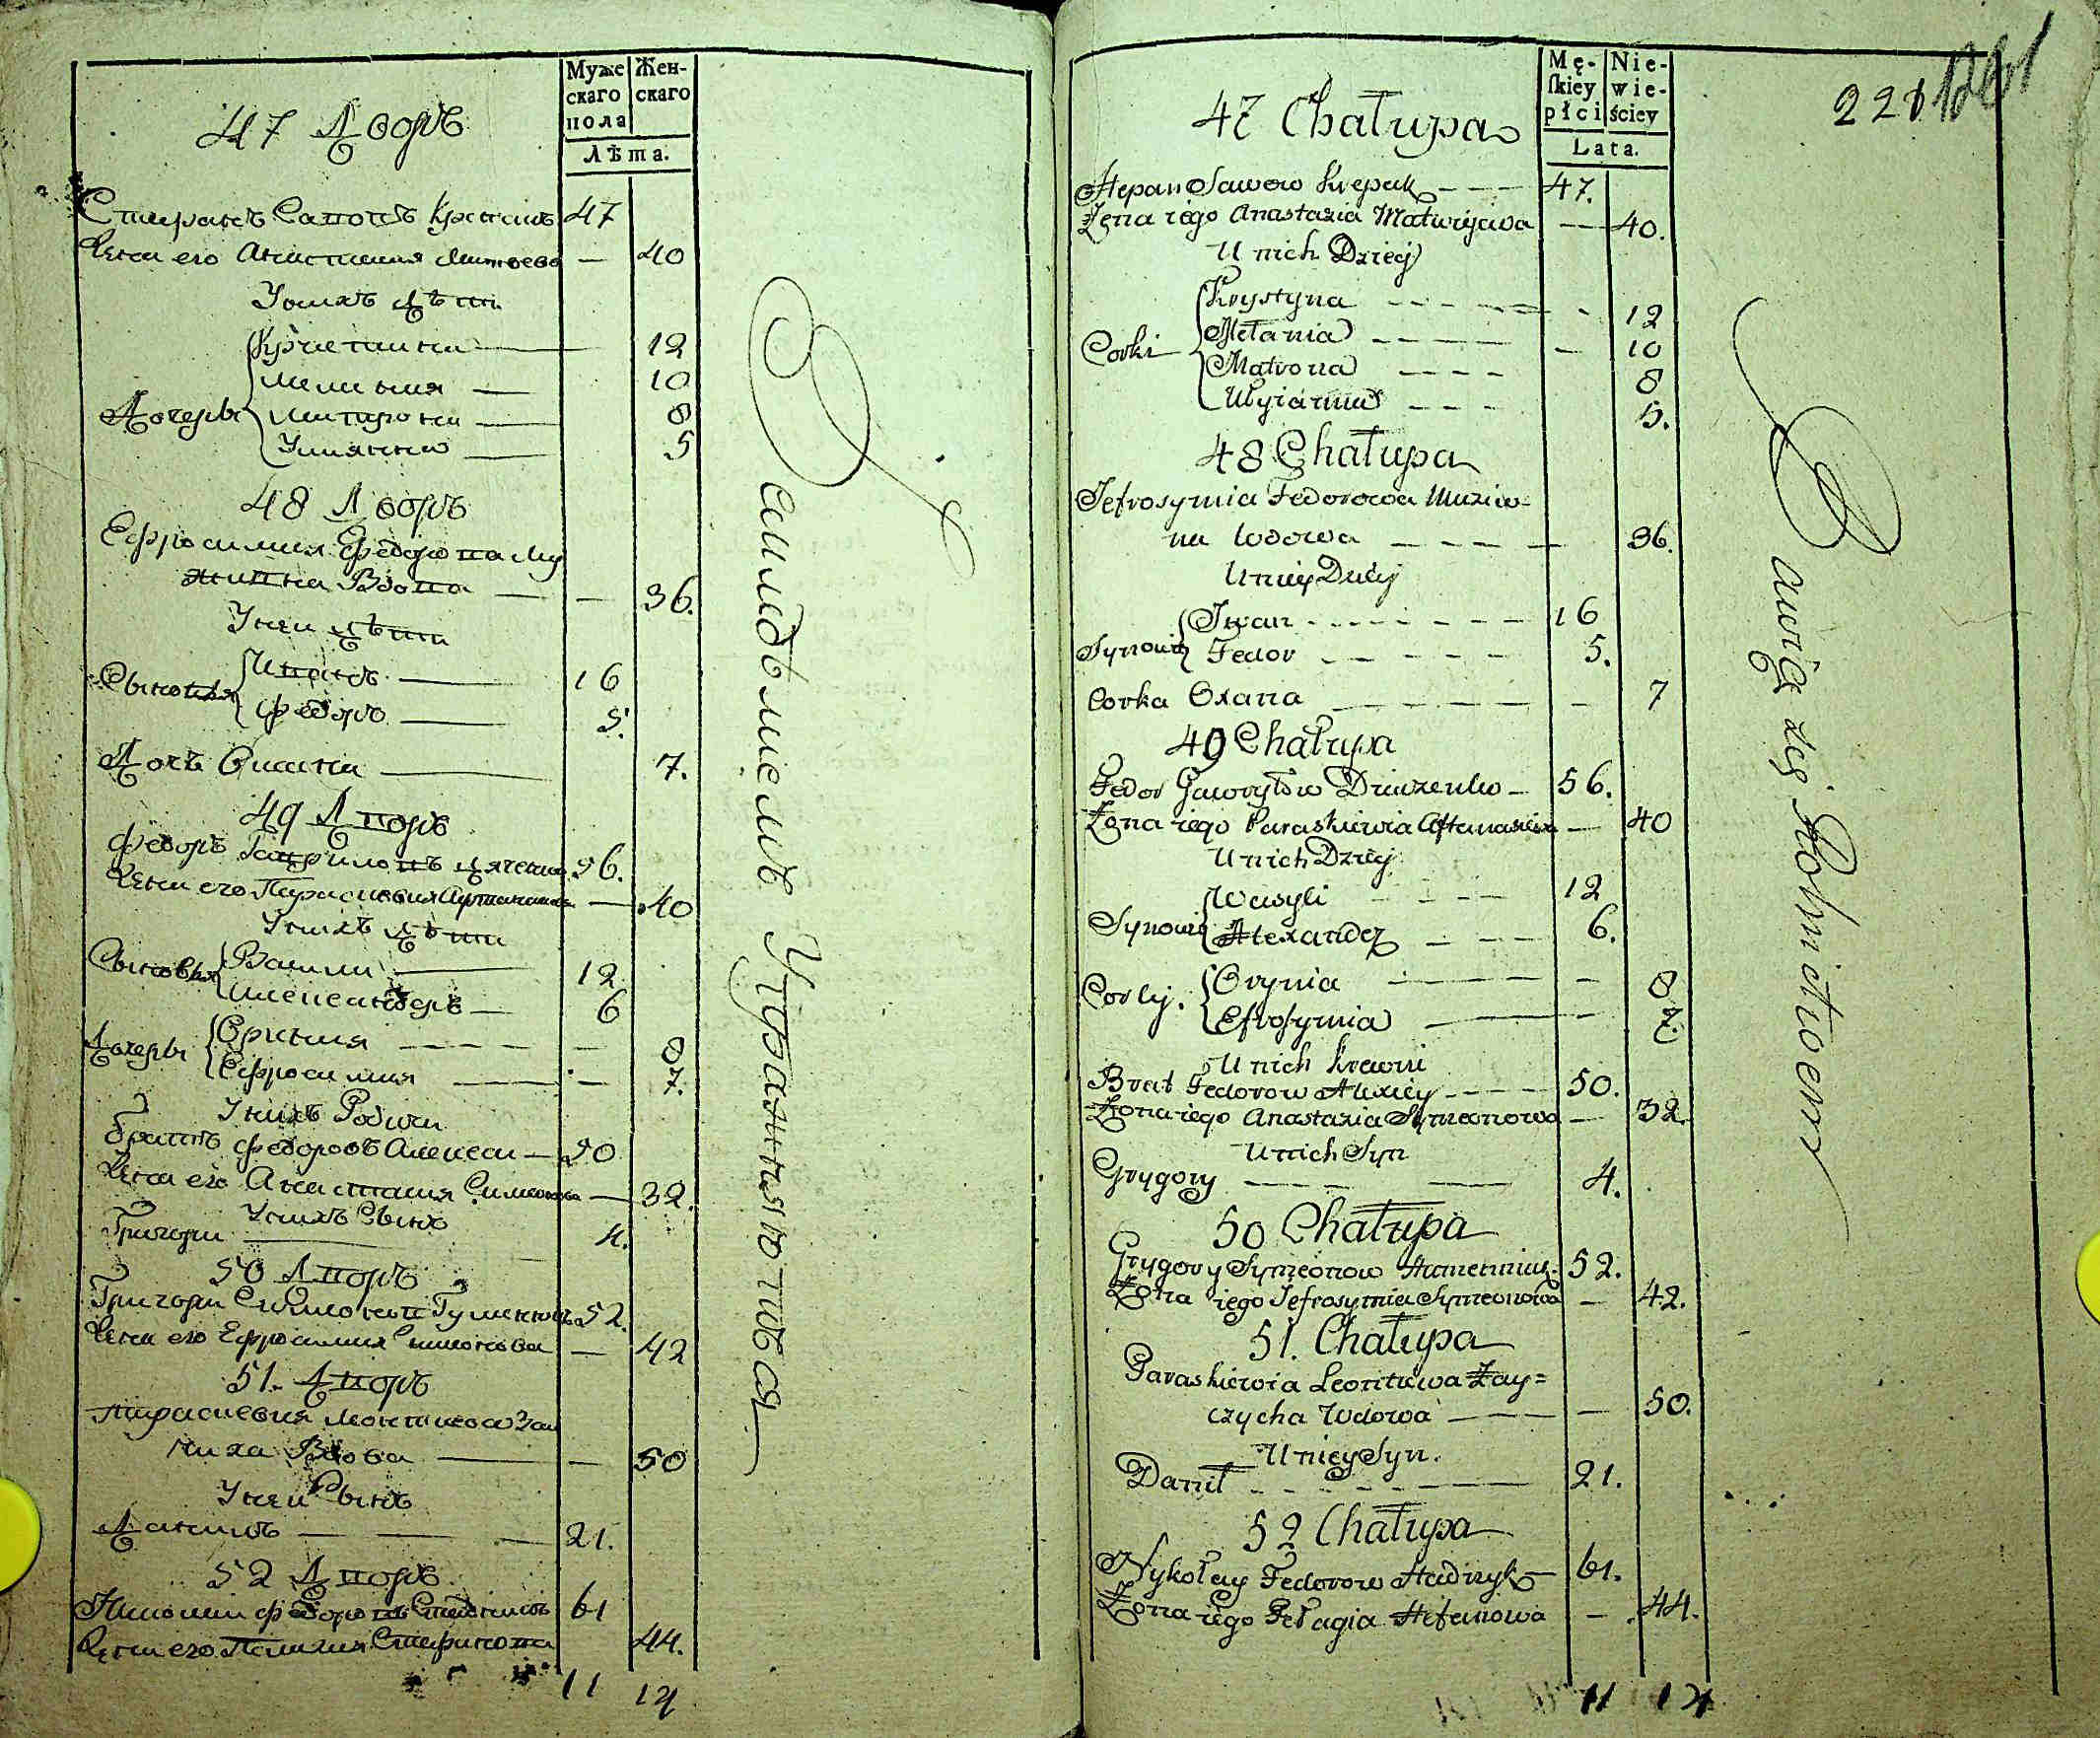 Муже
скаго
пола
Жен-
скаго
Лѣта.
47 Дворъ
Степанъ Савовъ Крепакъ 47
Жена его Анастасия — 40
У нихъ Дѣти
Дочери
Кристина — 12
Мелания — 10
Матрона — 8
Ульянна — 5
48 Дворъ
Ефросимия Федорова Му
жикна Вдова — — 36.
У неи Дѣти
Сыновья
Иванъ — 16
Федоръ — 5.
Дочь Оксана — 7.
49 Дворъ
Федоръ Гавриловъ 56.
Жена его Параскевия — 40
У нихъ Дѣти
Сыновья
Васили — 12
Александеръ — 6
Дочери
Ориния — — — 8
Ефросимия — — 7.
У нихъ Родичи
Братъ Федоровъ Алексеи — 50
Жена его Анастасия Симеонова — 32.
У нихъ Сынъ
Григори — 4.
50 Дворъ
Григори 52.
Жена его Ефросимия Симонова — 42
51. Дворъ
Параскевия Леонтиова Зай
чиха Вдова — — 50
У неи Сынъ
Данилъ — — — 21.
52 Дворъ
Николаи Федоровъ 61
Жена его Пелагия Стефанова 44.
11 12
занимаются
Mę-
skiey
płci
Nie-
wie-
ściey
Lata.
221
47 Chałupa
Stepan Sawow Krepak — — — 47.
Żona iego Anastazia Matwijewa — 40.
U nich Dzieci
Corki
Krystyna — — — 12
Mełania — — — 10
Matrona — — — 8
Ulyianna — — — 5.
48 Chałupa
Jefrosymia Fedorowa Muzico-
na wdowa — — — — 36.
U niey Dzieci
Synowie
Iwan — — — 16
Fedor — — — 5.
Corka Oxana — — — 7
49 Chałupa
Fedor Gawryłow — 56.
Żona iego Paraskiewia Aftanasiewa — 40
U nich Dzieci
Synowie
Wasyli — — — 12
Alexander — — — 6.
Corki.
Orynia — — — 8
Efrosymia — — 7.
U nich Krewni
Brat Fedorow Alexiey — — — 50.
Żona iego Anastazia Symeonowa — 32.
U nich Syn
Grygory — — — 4.
50 Chałupa
Grygory Symeonow 52.
Żona iego Jefrosymia Symeonowa — 42.
51. Chałupa
Paraskiewia Leontiewa Zay=
czycha Wdowa — — — 50.
U niey Syn.
Danił — — — 21.
52 Chałupa
Nykołay Fedorow 61.
Żona iego Pełagia Stefanowa — 44.
11 12
Bawią się Rolnictwem